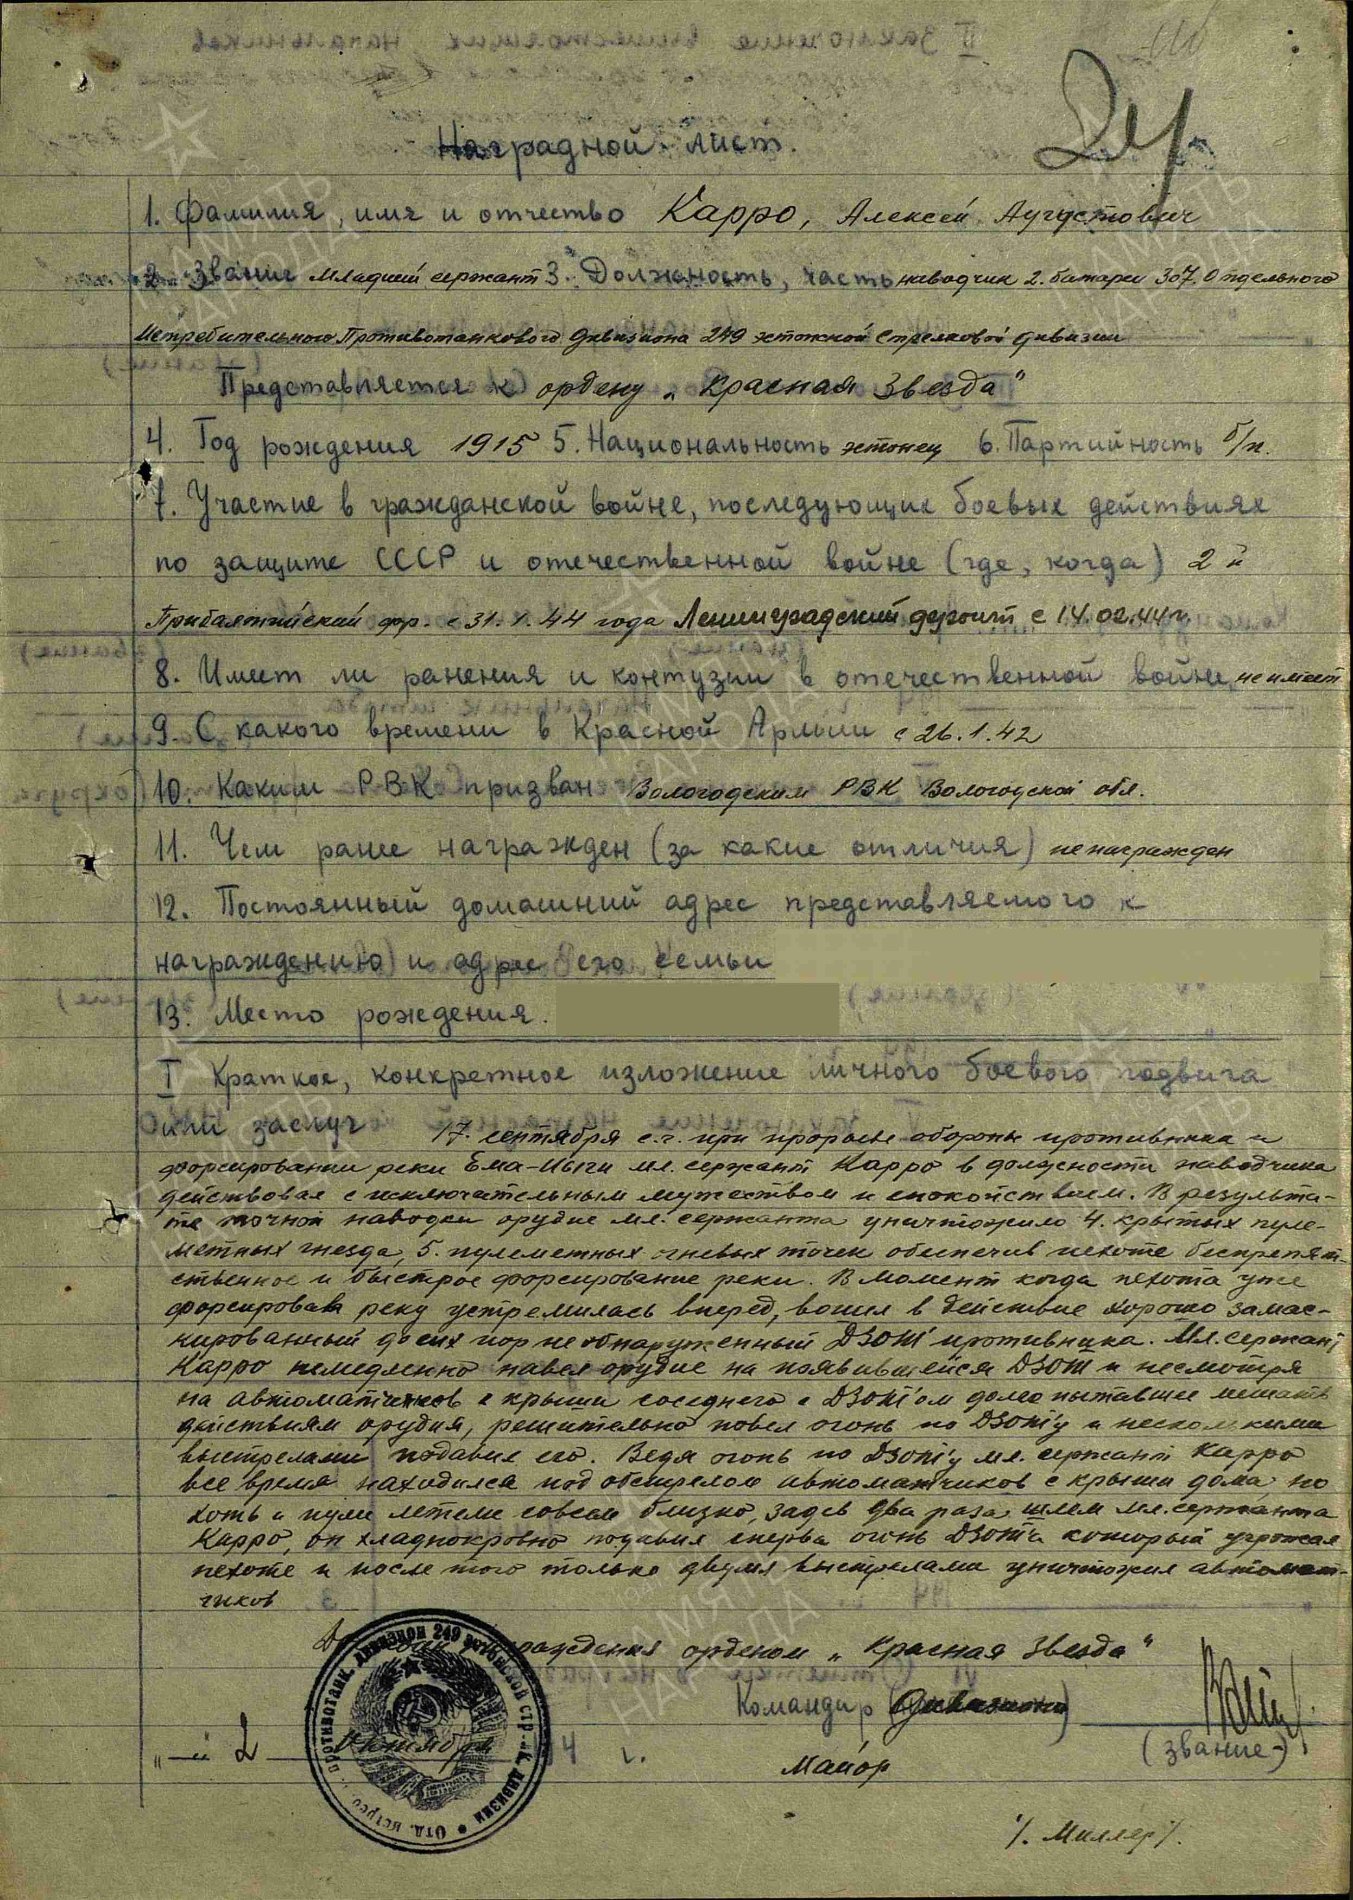 Наградной лист.
1. Фамилия, имя и отчество Карро, Алексей Аугустович
2. Звание младший сержант 3. Должность, часть наводчик 2. батареи 307. Отдельного
Истребительного Противотанкового дивизиона 249 эстонской Стрелковой дивизии
Представляется к ордену „Красная Звезда"
4. Год рождения 1915 5. Национальность эстонец 6. Партийность б/п.
7. Участие в гражданской войне, последующих боевых действиях
по защите СССР и отечественной войне (где, когда) 2 й
Прибалтийский фр. с 31.1.44 года Ленинградский фронт с 14.02.44г.
8. Имеет ли ранения и контузии в отечественной войне не имеет
9. С какого времени в Красной Армии с 26.1.42
10. Каким РВК призван Вологодским РВК Вологодской обл.
11. Чем ранее награжден (за какие отличия) не награжден
12. Постоянный домашний адрес представляемого к
награждению и адрес его семьи
13. Место рождения.
I Краткое, конкретное изложение личного боевого подвига
или заслуг 17. сентября с.г. при прорыве обороны противника и
форсировании реки Ема-Иыги мл. сержант Карро в должности наводчика
действовал с исключительным мужеством и спокойствием. В результа-
те точной наводки орудие мл. сержанта уничтожило 4. крытых пуле-
метных гнезда, 5. пулеметных огневых точек обеспечив пехоте беспрепят-
ственное и быстрое форсирование реки. В момент когда пехота уже
форсировав реку устремилась вперед, вошел в действие хорошо замас-
кированный до сих пор не обнаруженный ДЗОТ противника. Мл. сержант
Карро немедленно навел орудие на появившейся ДЗОТ и несмотря
на автоматчиков с крыши соседнего с ДЗОТ'ом дома пытавшие мешать
действиям орудия, решительно повел огонь по ДЗОТ'у и несколькими
выстрелами подавил его. Ведя огонь по ДЗОТ'у мл. сержант Карро
все время находился под обстрелом автоматчиков с крыши дома, но
хоть и пули летели совсем близко, задев два раза шлем мл. сержанта
Карро, он хладнокровно подавил сперва огонь ДЗОТ'а который угрожал
пехоте и после того только двумя выстрелами уничтожил автомат-
чиков
награждения орденом „Красная Звезда"
Командир (дивизиона)
„ — " 2 октября 4 г. (звание)
майор
/. Миллер/.
24
противотанк. дивизион 249 эстонской стр-к. дивизии • Отд. истреб.
ПАМЯТЬ НАРОДА